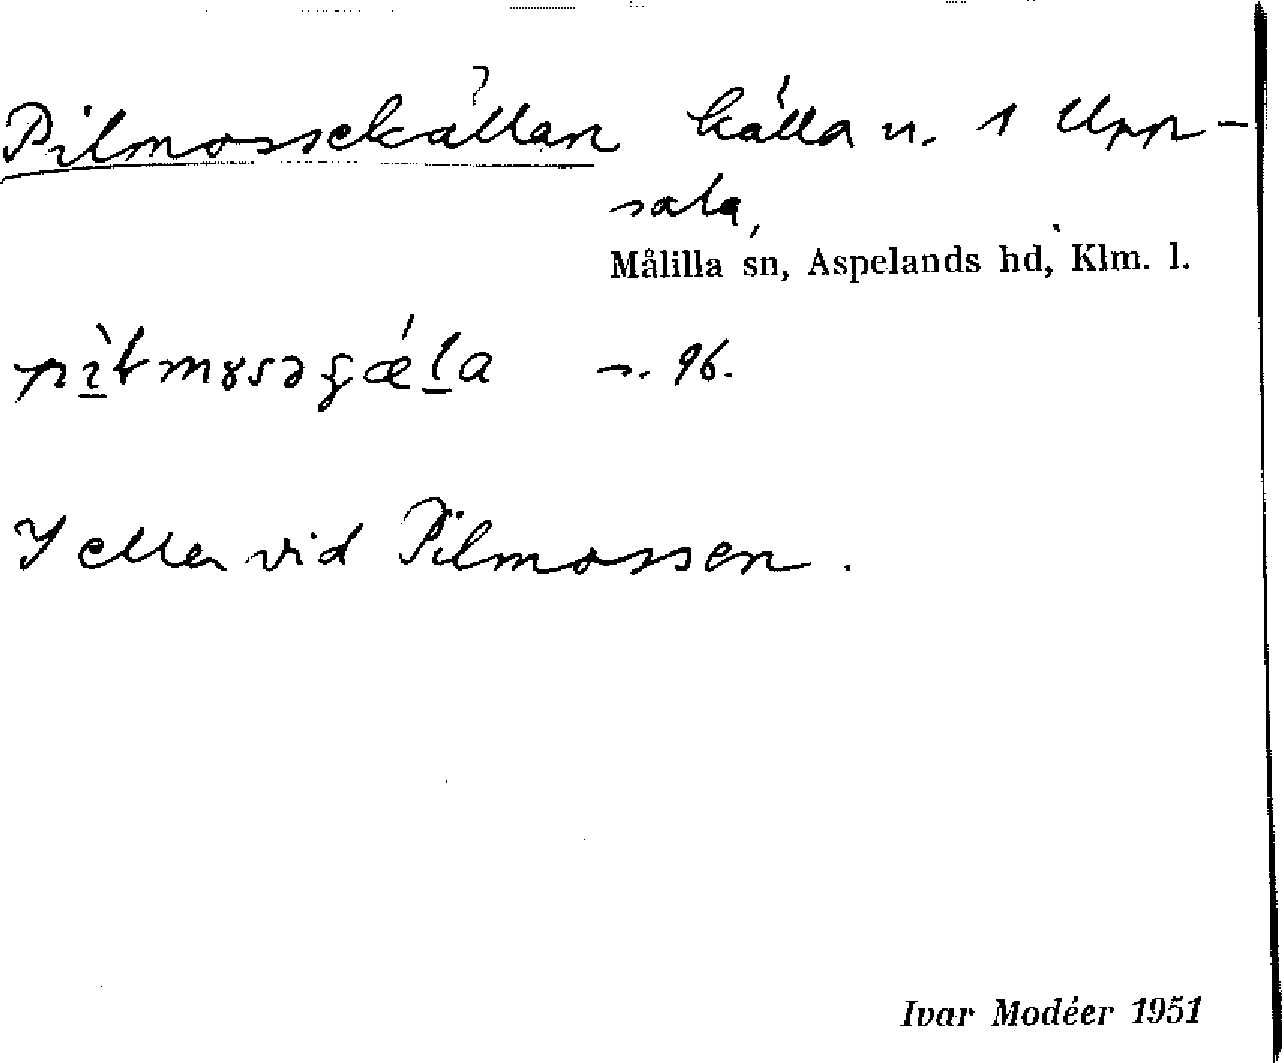 Pilmossekällan källa n. 1 Upp-
sala,
Målilla sn, Aspelands hd, Klm. l.
n. 96.
I eller vid Pilmossen.
Ivar Modéer 1951